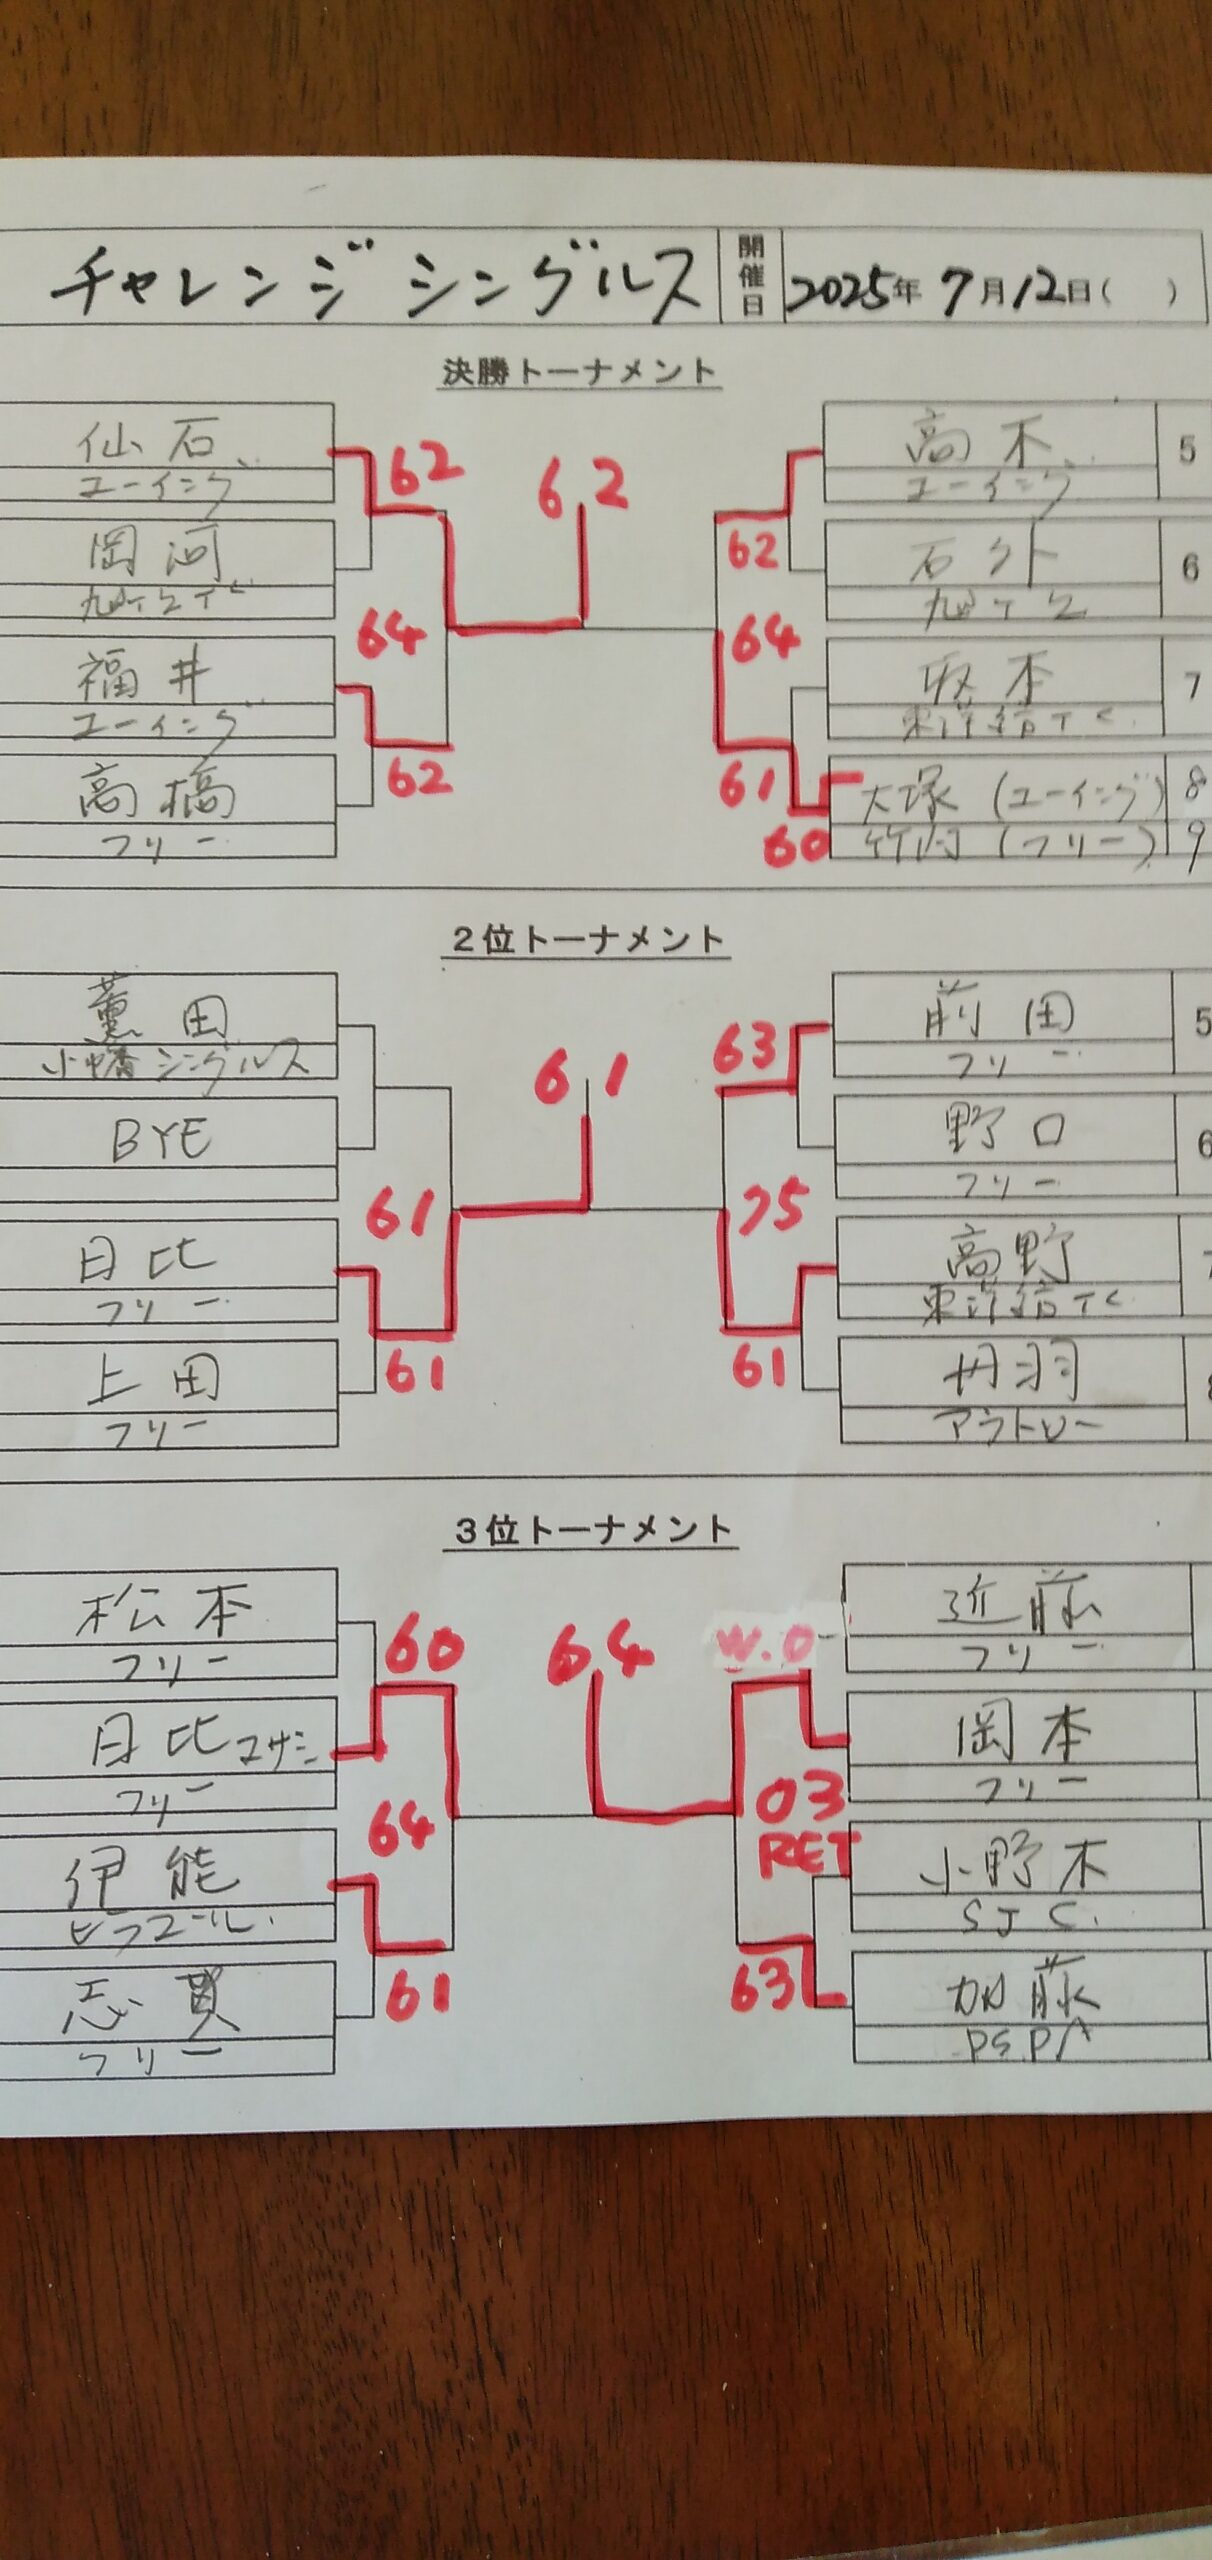 チャレンジシングルス
開催日
2025年7月12日( )
決勝トーナメント
仙石
ユーイング
岡河
福井
ユーイング
高橋
フリー
62
64
62
62
高木
ユーイング
5
石外
6
坂本
東洋紡TC
7
大塚 (ユーイング)
8
竹内 (フリー)
9
62
64
61
60
2位トーナメント
薫田
小幡シングルス
BYE
日比
フリー
上田
フリー
61
61
61
前田
フリー
5
野口
フリー
6
高野
東洋紡TC
7
丹羽
アウトロー
63
75
61
3位トーナメント
松本
フリー
日比
フリー
伊能
志貫
フリー
60
64
61
64
近藤
フリー
岡本
フリー
小野木
SJC.
加藤
PSPA
W.O
03
RET
63